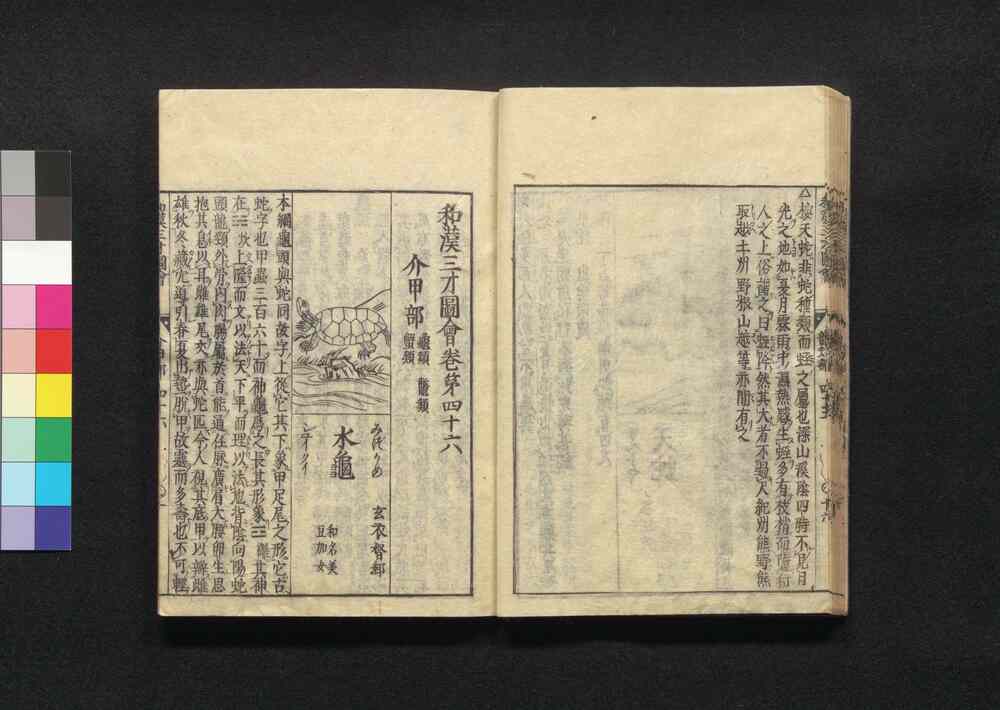 △按天蛇非蛇種類而蛭之屬也深山溪陰四時不見月
光之地如夏月霖雨中濕熱感生蛭多有枝梢而墮行
人之上俗謂之曰蛭降然其大者不過尺紀州熊野熊
取越士州野根山越等亦間有之
和漢三才圖會卷第四十六
介甲部
龜類
鼈類
蟹類
水龜
みづかめ
シユイクイ
玄衣督郵
和名美
豆加女
本綱龜頭與蛇同故字上從它其下象甲足尾之形它古
蛇字也甲蟲三百六十而神龜爲之長其形象離其神
在坎上隆而文以法天下平而理以法地背陰向陽蛇
頭龍頸外骨內肉腸屬於首能通任脉廣肩大腰卵生思
抱其息以耳雌雄尾交亦與蛇匹今人視其底甲以辨雌
雄秋冬藏穴導引春夏出蟄脫甲故靈而多壽也不可輕